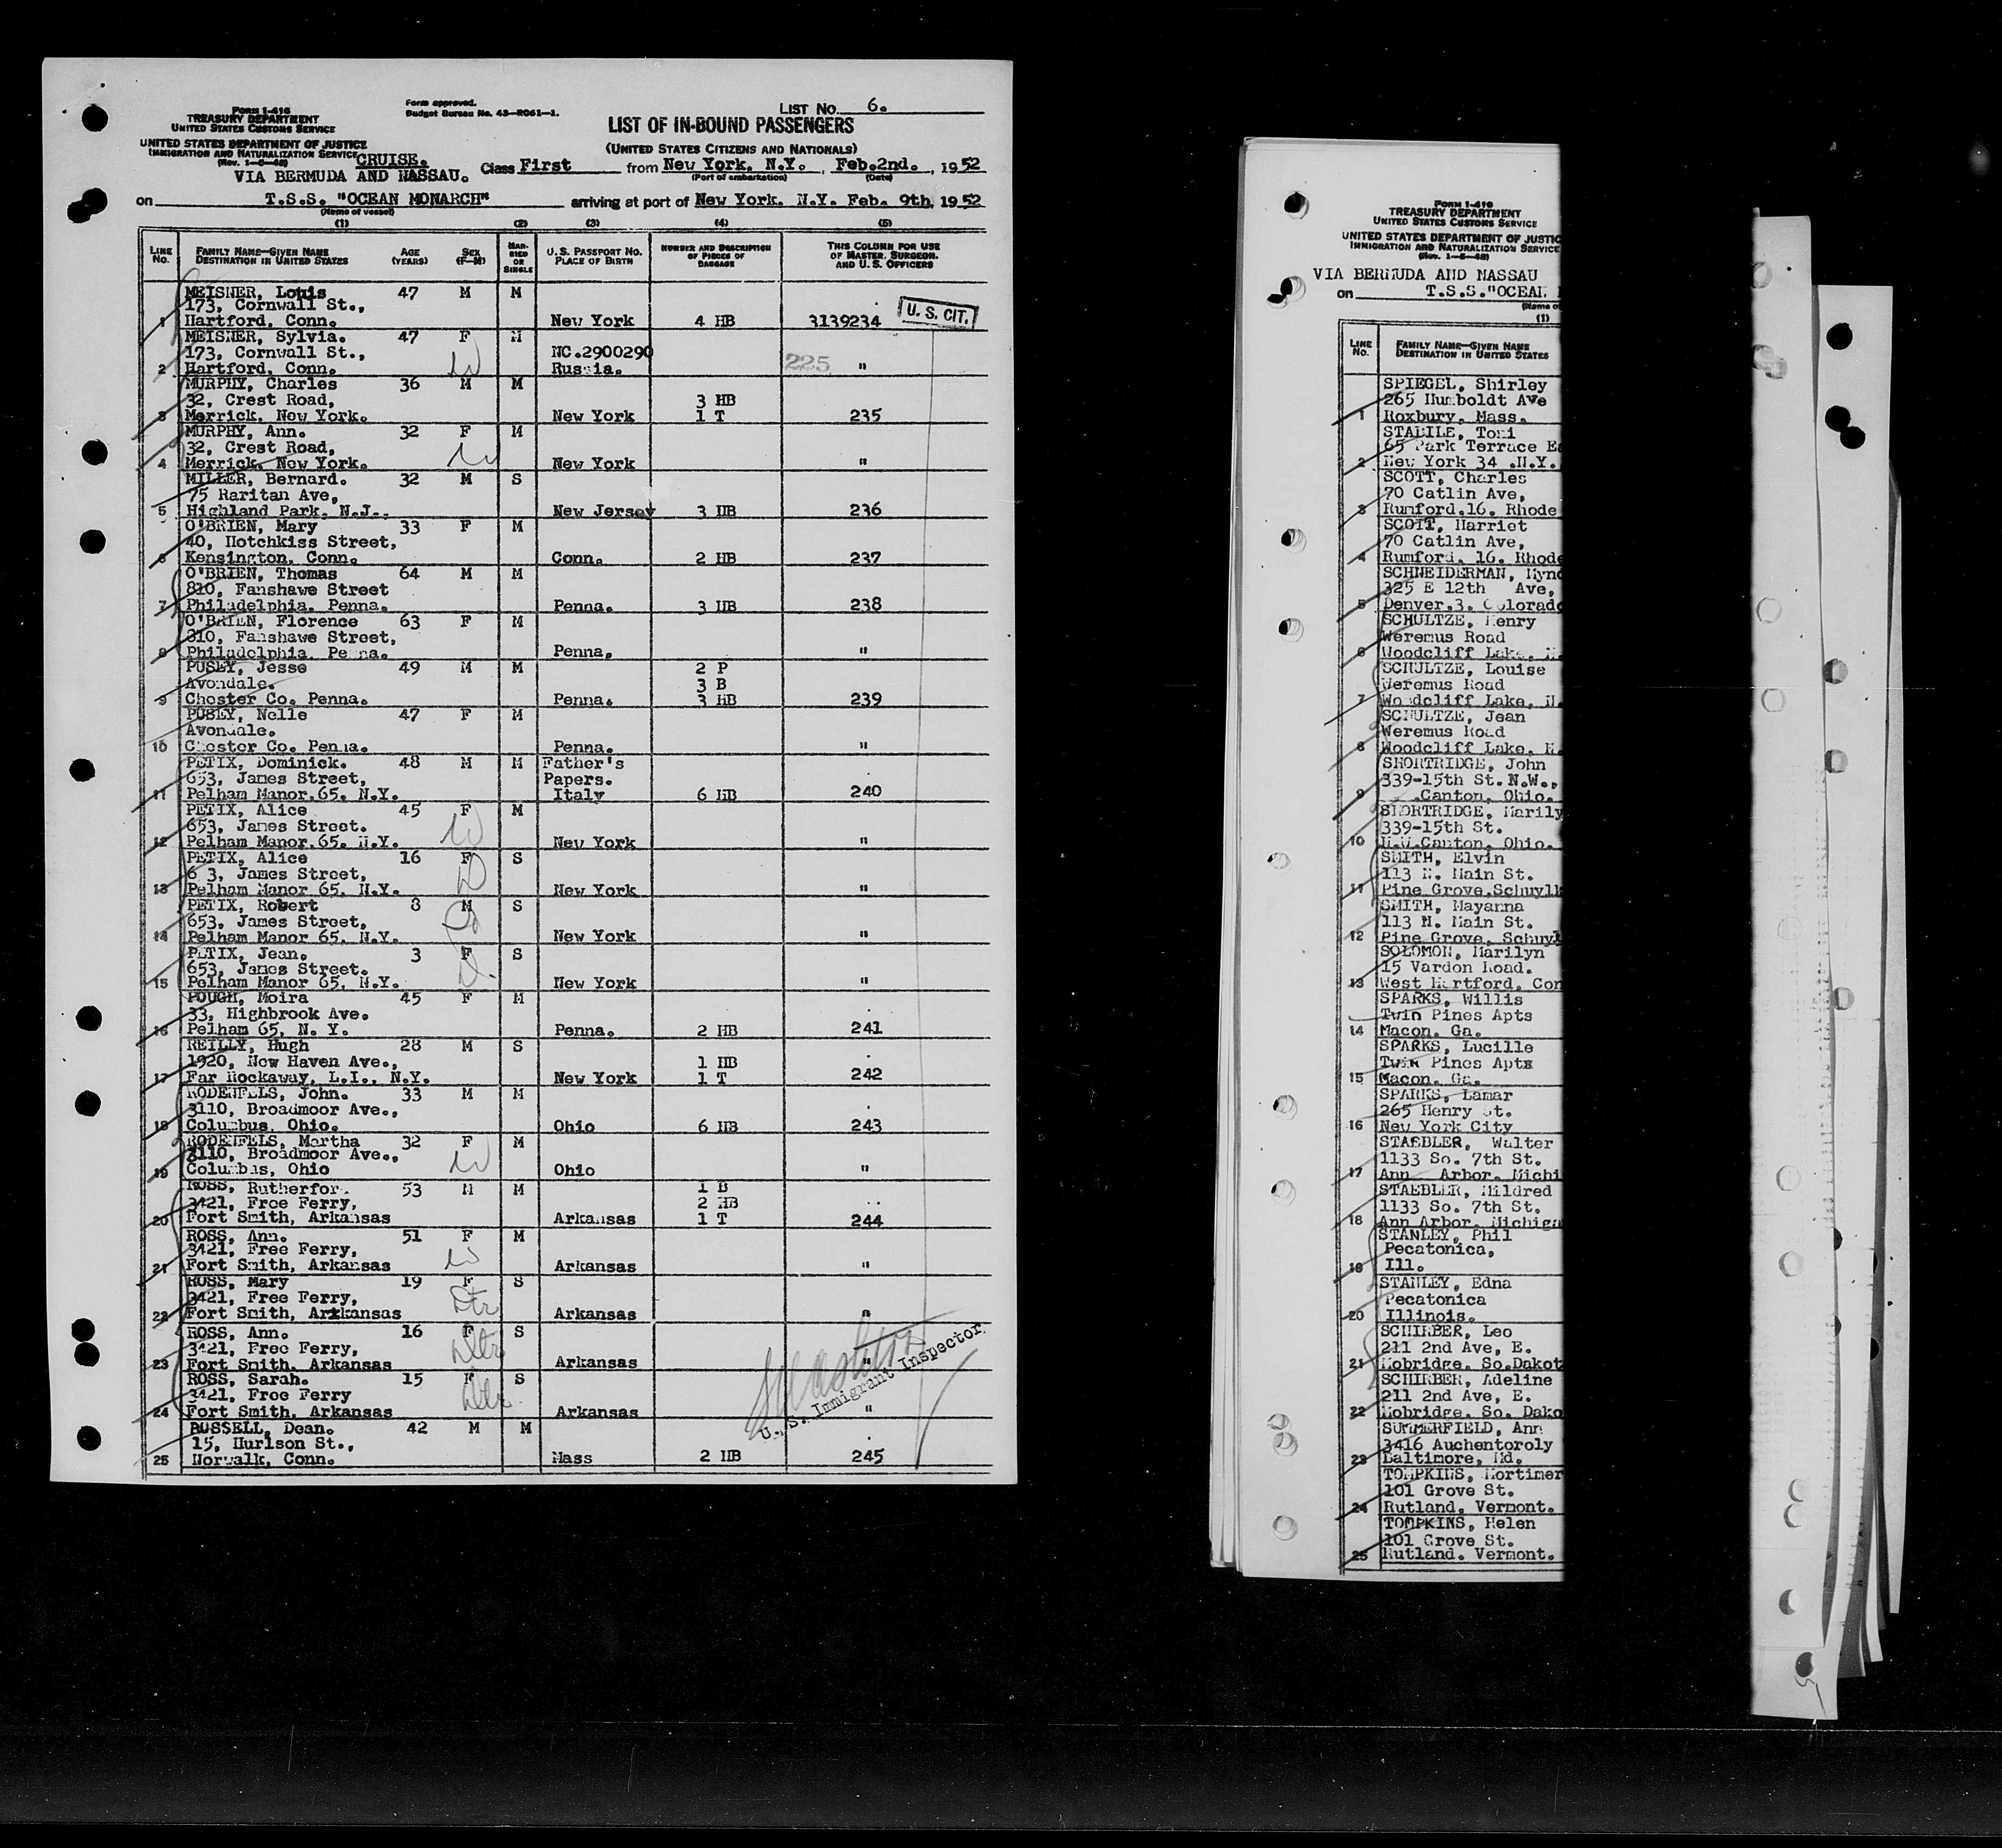 Form I-416
TREASURY DEPARTMENT
UNITED STATES CUSTOMS SERVICE
UNITED STATES DEPARTMENT OF JUSTICE
IMMIGRATION AND NATURALIZATION SERVICE
CRUISE.
VIA BERMUDA AND NASSAU.
Form approved.
Budget Bureau No. 43—R061—1.
LIST No. 6.
LIST OF IN-BOUND PASSENGERS
(UNITED STATES CITIZENS AND NATIONALS)
Class First from New York. N.Y. , Feb.2nd. , 1952
(Port of embarkation) (Date)
on T.S.S. "OCEAN MONARCH" arriving at port of New York. N.Y. Feb. 9th, 1952
(Name of vessel)
(1) (2) (3) (4) (5)
LINE No. FAMILY NAME—GIVEN NAME DESTINATION IN UNITED STATES AGE (YEARS) SEX (F—M) MARRIED OR SINGLE U.S. PASSPORT NO. PLACE OF BIRTH NUMBER AND DESCRIPTION OF PIECES OF BAGGAGE THIS COLUMN FOR USE OF MASTER, SURGEON, AND U. S. OFFICERS
MEISNER, Louis 47 M M
173, Cornwall St.,
1 Hartford, Conn. New York 4 HB 3139234 U. S. CIT.
MEISNER, Sylvia. 47 F M
173, Cornwall St., NC.2900290
2 Hartford, Conn. Russia. 225 "
MURPHY, Charles 36 M M
32, Crest Road, 3 HB
3 Merrick, New York. New York 1 T 235
MURPHY, Ann. 32 F M
32, Crest Road, W
4 Merrick, New York. New York "
MILLER, Bernard. 32 M S
75 Raritan Ave,
5 Highland Park, N.J. New Jersey 3 HB 236
O'BRIEN, Mary 33 F M
40, Hotchkiss Street,
6 Kensington, Conn. Conn. 2 HB 237
O'BRIEN, Thomas 64 M M
810, Fanshawe Street
7 Philadelphia. Penna. Penna. 3 HB 238
O'BRIEN, Florence 63 F M
810, Fanshawe Street,
8 Philadelphia. Penna. Penna. "
PUSEY, Jesse 49 M M 2 P
Avondale. 3 B
9 Chester Co. Penna. Penna. 3 HB 239
PUSEY, Nelle 47 F M
Avondale.
10 Chester Co. Penna. Penna. "
PETIX, Dominick. 48 M M Father's
653, James Street, Papers.
11 Pelham Manor.65. N.Y. Italy 6 HB 240
PETIX, Alice 45 F M
653, James Street. W
12 Pelham Manor.65. N.Y. New York "
PETIX, Alice 16 F S
6 3, James Street, D
13 Pelham Manor 65, N.Y. New York "
PETIX, Robert 8 M S
653, James Street,
14 Pelham Manor 65, N.Y. New York "
PETIX, Jean. 3 F S
653, James Street. D.
15 Pelham Manor 65, N.Y. New York "
POUGH, Moira 45 F M
33, Highbrook Ave.
16 Pelham 65, N. Y. Penna. 2 HB 241
REILLY, Hugh 28 M S
1920, New Haven Ave., 1 HB
17 Far Rockaway, L.I., N.Y. New York 1 T 242
RODENFELS, John. 33 M M
3110, Broadmoor Ave.,
18 Columbus, Ohio. Ohio 6 HB 243
RODENFELS, Martha 32 F M
3110, Broadmoor Ave., W
19 Columbus, Ohio Ohio "
ROSS, Rutherfor. 53 M M 1 B
3421, Free Ferry, 2 HB
20 Fort Smith, Arkansas Arkansas 1 T 244
ROSS, Ann. 51 F M
3421, Free Ferry, W
21 Fort Smith, Arkansas Arkansas "
ROSS, Mary 19 F S
3421, Free Ferry, Dtr
22 Fort Smith, Arkansas Arkansas "
ROSS, Ann. 16 F S
3421, Free Ferry, Dtr
23 Fort Smith, Arkansas Arkansas "
ROSS, Sarah. 15 F S
3421, Free Ferry Dtr.
24 Fort Smith, Arkansas Arkansas "
U. S. Immigrant Inspector
RUSSELL, Dean. 42 M M
15, Hurlson St.,
25 Norwalk, Conn. Mass 2 HB 245
Form I-416
TREASURY DEPARTMENT
UNITED STATES CUSTOMS SERVICE
UNITED STATES DEPARTMENT OF JUSTIC
IMMIGRATION AND NATURALIZATION SERVICE
VIA BERMUDA AND NASSAU
on T.S.S."OCEAN
(Name of
(1)
LINE No. FAMILY NAME—GIVEN NAME DESTINATION IN UNITED STATES
SPIEGEL, Shirley
265 Humboldt Ave
1 Roxbury, Mass.
STABILE, Toni
65 Park Terrace Ea
2 New York 34 .N.Y.
SCOTT, Charles
70 Catlin Ave,
3 Rumford.16. Rhode
SCOTT, Harriet
70 Catlin Ave,
4 Rumford. 16. Rhode
SCHNEIDERMAN, Mync
325 E 12th Ave,
5 Denver.3. Colorado
SCHULTZE, Henry
Weremus Road
6 Woodcliff Lake, N.
SCHULTZE, Louise
Weremus Road
7 Woodcliff Lake, N.
SCHULTZE, Jean
Weremus Road
8 Woodcliff Lake, N.
SHORTRIDGE, John
339-15th St. N.W.,
9 Canton, Ohio.
SHORTRIDGE, Marily
339-15th St.
10 N.W.Canton, Ohio.
SMITH, Elvin
113 N. Main St.
11 Pine Grove,Schuylk
SMITH, Mayanna
113 N. Main St.
12 Pine Grove, Schuyl
SOLOMON, Marilyn
15 Vardon Road.
13 West Hartford, Con
SPARKS, Willis
Twin Pines Apts
14 Macon, Ga.
SPARKS, Lucille
Twin Pines Apts
15 Macon, Ga.
SPARKS, Lamar
265 Henry St.
16 New York City
STAEBLER, Walter
1133 So. 7th St.
17 Ann Arbor, Michi
STAEBLER, Mildred
1133 So. 7th St.
18 Ann Arbor, Michiga
STANLEY, Phil
Pecatonica,
19 Ill.
STANLEY, Edna
Pecatonica
20 Illinois.
SCHIRBER, Leo
211 2nd Ave, E.
21 Mobridge. So.Dakot
SCHIRBER, Adeline
211 2nd Ave, E.
22 Mobridge. So. Dako
SUMMERFIELD, Ann
3416 Auchentoroly
23 Baltimore, Md.
TOMPKINS, Mortimer
101 Grove St.
24 Rutland. Vermont.
TOMPKINS, Helen
101 Grove St.
25 Rutland. Vermont.